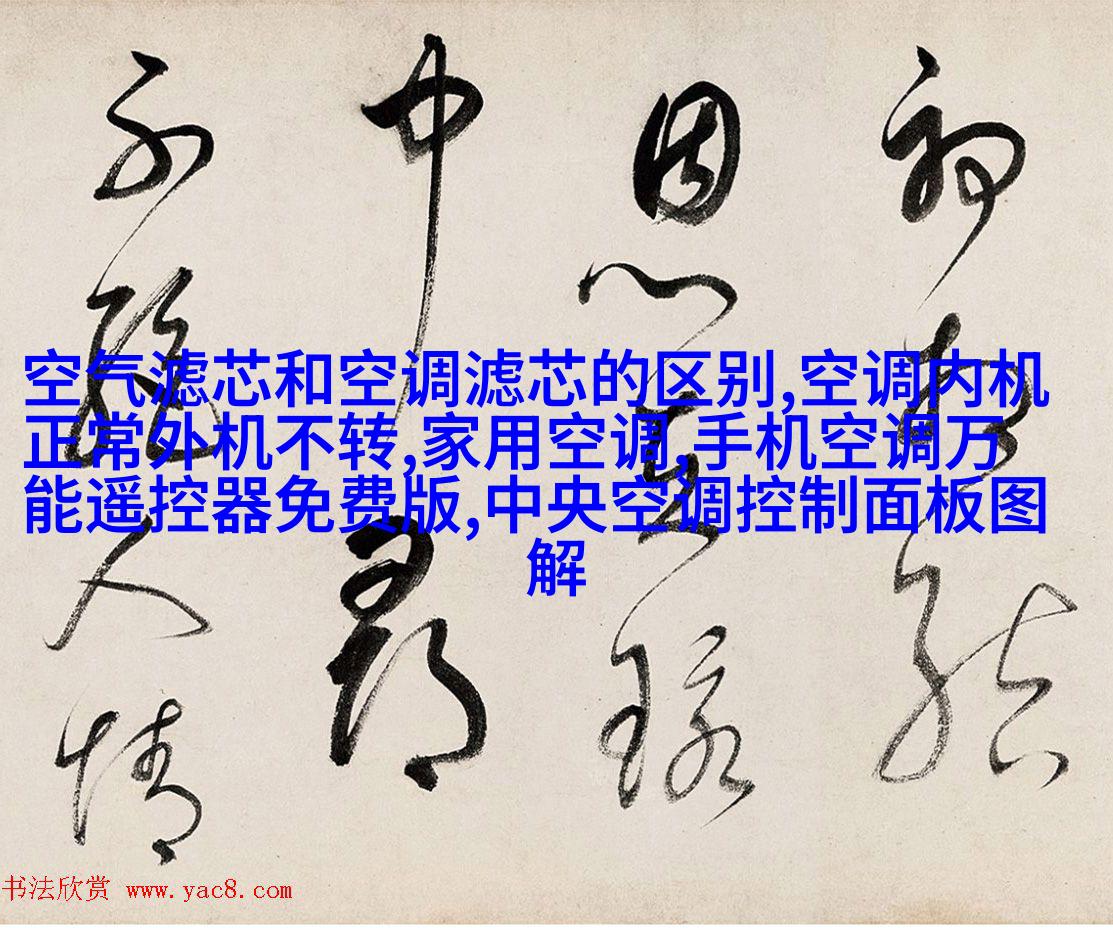 空气滤芯和空调滤芯的区别,空调内机
正常外机不转,家用空调,手机空调万
能遥控器免费版,中央空调控制面板图
解
恩
中
不 人情
书法欣赏 www.yac8.com